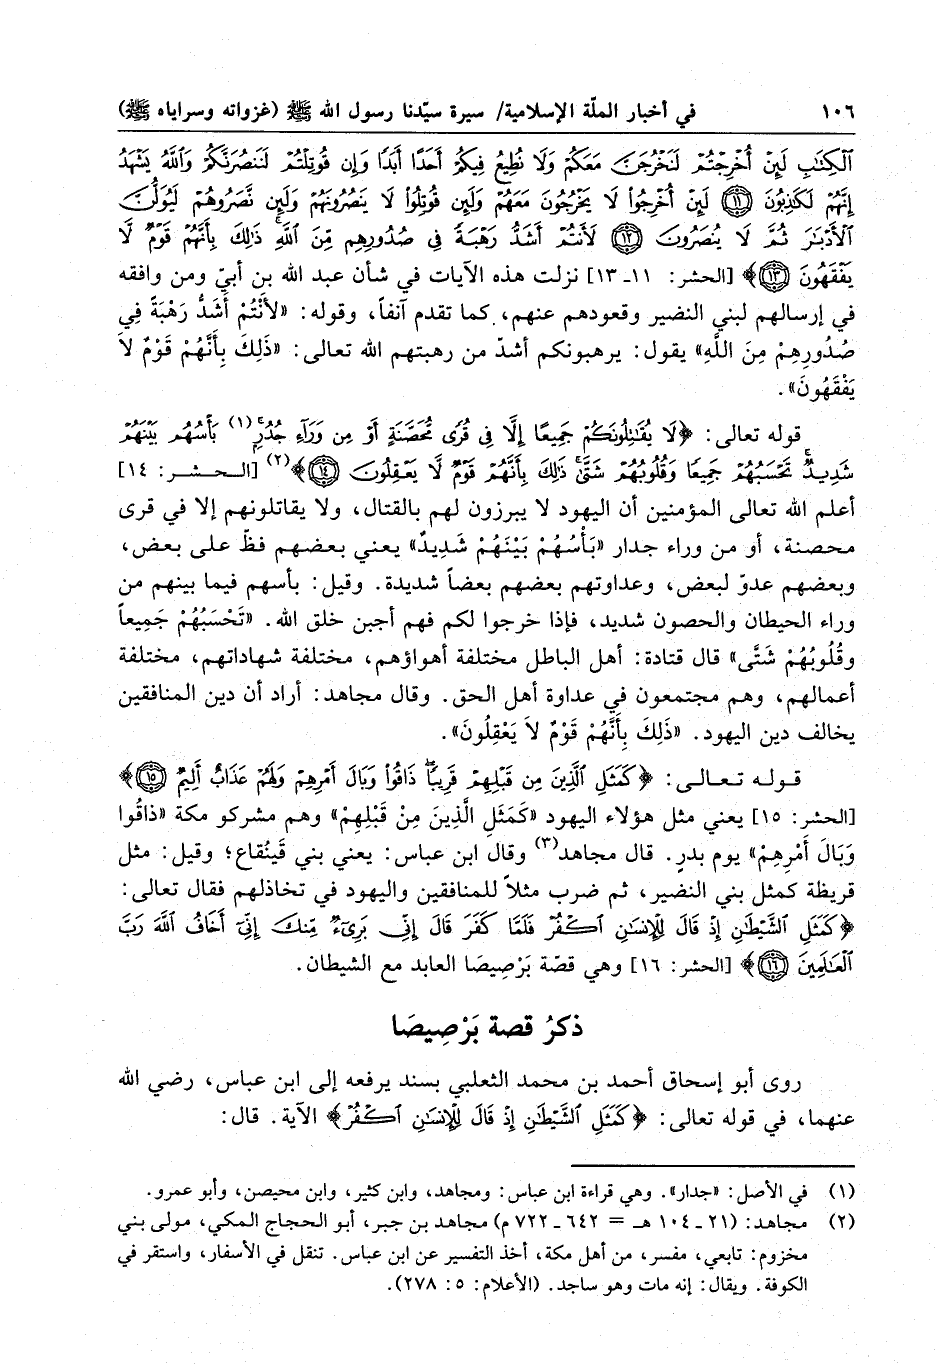 ١٠٦ في أخبار الملّة الإسلامية/ سيرة سيّدنا رسول الله ﷺ (غزواته وسراياه ﷺ)
ٱلْكِتَٰبِ لَئِنْ أُخْرِجْتُمْ لَنَخْرُجَنَّ مَعَكُمْ وَلَا نُطِيعُ فِيكُمْ أَحَدًا أَبَدًا وَإِن قُوتِلْتُمْ لَنَنصُرَنَّكُمْ وَٱللَّهُ يَشْهَدُ
إِنَّهُمْ لَكَٰذِبُونَ ۝١١ لَئِنْ أُخْرِجُوا۟ لَا يَخْرُجُونَ مَعَهُمْ وَلَئِن قُوتِلُوا۟ لَا يَنصُرُونَهُمْ وَلَئِن نَّصَرُوهُمْ لَيُوَلُّنَّ
ٱلْأَدْبَٰرَ ثُمَّ لَا يُنصَرُونَ ۝١٢ لَأَنتُمْ أَشَدُّ رَهْبَةً فِى صُدُورِهِم مِّنَ ٱللَّهِ ۚ ذَٰلِكَ بِأَنَّهُمْ قَوْمٌ لَّا
يَفْقَهُونَ ۝١٣﴾ [الحشر: ١١ـ١٣] نزلت هذه الآيات في شأن عبد الله بن أبيّ ومن وافقه
في إرسالهم لبني النضير وقعودهم عنهم، كما تقدم آنفاً، وقوله: «لأَنْتُمْ أَشَدُّ رَهْبَةً فِي
صُدُورِهِمْ مِنَ اللَّهِ» يقول: يرهبونكم أشدّ من رهبتهم الله تعالى: «ذَلِكَ بِأَنَّهُمْ قَوْمٌ لاَ
يَفْقَهُونَ».
قوله تعالى: ﴿لَا يُقَٰتِلُونَكُمْ جَمِيعًا إِلَّا فِى قُرًى مُّحَصَّنَةٍ أَوْ مِن وَرَآءِ جُدُرٍۭ ۚ(١) بَأْسُهُم بَيْنَهُمْ
شَدِيدٌ ۚ تَحْسَبُهُمْ جَمِيعًا وَقُلُوبُهُمْ شَتَّىٰ ۚ ذَٰلِكَ بِأَنَّهُمْ قَوْمٌ لَّا يَعْقِلُونَ ۝١٤﴾(٢) [الحشر: ١٤]
أعلم الله تعالى المؤمنين أن اليهود لا يبرزون لهم بالقتال، ولا يقاتلونهم إلا في قرى
محصنة، أو من وراء جدار «بَأْسُهُمْ بَيْنَهُمْ شَدِيدٌ» يعني بعضهم فظّ على بعض،
وبعضهم عدوّ لبعض، وعداوتهم بعضهم بعضاً شديدة. وقيل: بأسهم فيما بينهم من
وراء الحيطان والحصون شديد، فإذا خرجوا لكم فهم أجبن خلق الله. «تَحْسَبُهُمْ جَمِيعاً
وقُلُوبُهُمْ شَتَّى» قال قتادة: أهل الباطل مختلفة أهواؤهم، مختلفة شهاداتهم، مختلفة
أعمالهم، وهم مجتمعون في عداوة أهل الحق. وقال مجاهد: أراد أن دين المنافقين
يخالف دين اليهود. «ذَلِكَ بِأَنَّهُمْ قَوْمٌ لاَ يَعْقِلُونَ».
قوله تعالى: ﴿كَمَثَلِ ٱلَّذِينَ مِن قَبْلِهِمْ قَرِيبًا ۖ ذَاقُوا۟ وَبَالَ أَمْرِهِمْ وَلَهُمْ عَذَابٌ أَلِيمٌ ۝١٥﴾
[الحشر: ١٥] يعني مثل هؤلاء اليهود «كَمَثَلِ الَّذِينَ مِنْ قَبْلِهِمْ» وهم مشركو مكة «ذاقُوا
وَبَالَ أَمْرِهِمْ» يوم بدرٍ. قال مجاهد(٣) وقال ابن عباس: يعني بني قَينُقاع؛ وقيل: مثل
قريظة كمثل بني النضير، ثم ضرب مثلاً للمنافقين واليهود في تخاذلهم فقال تعالى:
﴿كَمَثَلِ ٱلشَّيْطَٰنِ إِذْ قَالَ لِلْإِنسَٰنِ ٱكْفُرْ فَلَمَّا كَفَرَ قَالَ إِنِّى بَرِىٓءٌ مِّنكَ إِنِّىٓ أَخَافُ ٱللَّهَ رَبَّ
ٱلْعَٰلَمِينَ ۝١٦﴾ [الحشر: ١٦] وهي قصّة بَرْصِيصَا العابد مع الشيطان.
ذكرُ قصة بَرْصِيصَا
روى أبو إسحاق أحمد بن محمد الثعلبي بسند يرفعه إلى ابن عباس، رضي الله
عنهما، في قوله تعالى: ﴿كَمَثَلِ ٱلشَّيْطَٰنِ إِذْ قَالَ لِلْإِنسَٰنِ ٱكْفُرْ﴾ الآية. قال:
(١) في الأصل: «جدار». وهي قراءة ابن عباس: ومجاهد، وابن كثير، وابن محيصن، وأبو عمرو.
(٢) مجاهد: (٢١ـ١٠٤ هـ = ٦٤٢ـ٧٢٢ م) مجاهد بن جبر، أبو الحجاج المكي، مولى بني
مخزوم: تابعي، مفسر، من أهل مكة، أخذ التفسير عن ابن عباس. تنقل في الأسفار، واستقر في
الكوفة. ويقال: إنه مات وهو ساجد. (الأعلام: ٥: ٢٧٨).